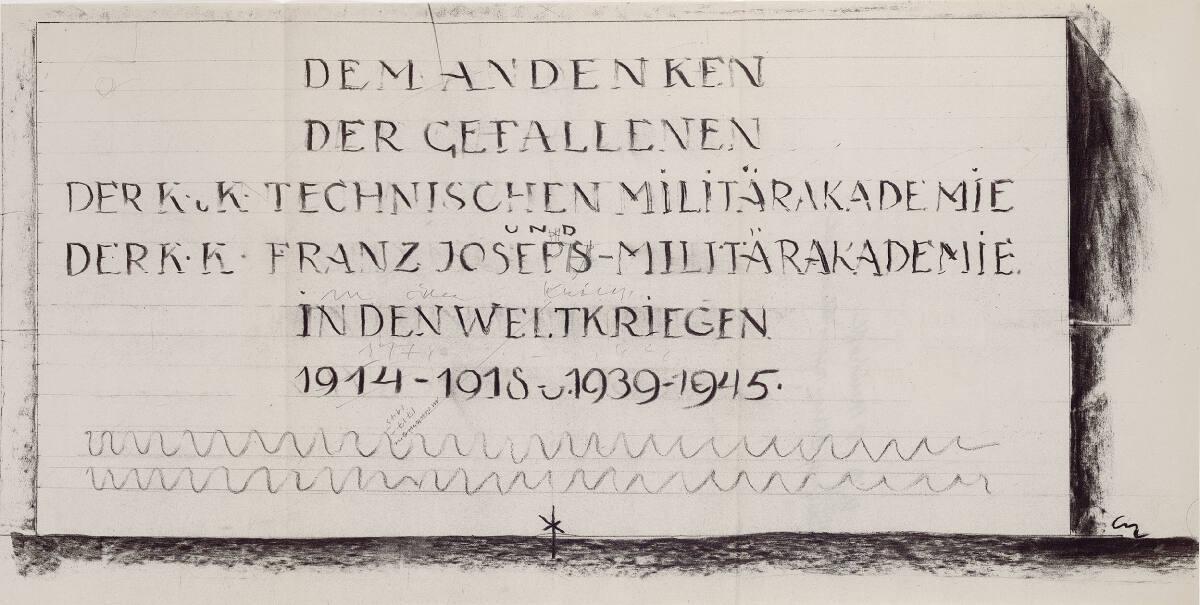 DEM ANDENKEN
DER GEFALLENEN
DER K. u. K. TECHNISCHEN MILITÄRAKADEMIE
UND
DER K. K. FRANZ JOSEPHS-MILITÄRAKADEMIE.
IN DEN WELTKRIEGEN
1914-1918 u. 1939-1945.